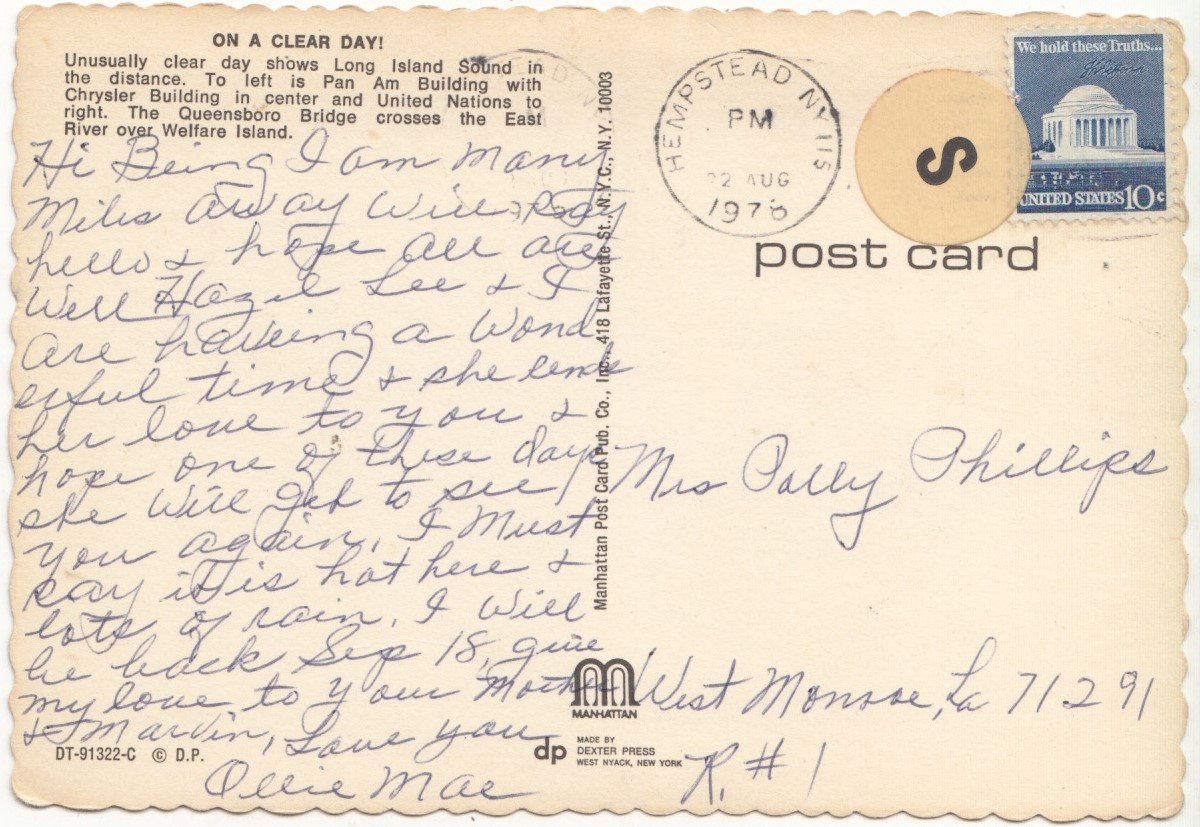 ON A CLEAR DAY!
Unusually clear day shows Long Island Sound in
the distance. To left is Pan Am Building with
Chrysler Building in center and United Nations to
right. The Queensboro Bridge crosses the East
River over Welfare Island.
Hi Being I am Many
Miles away will say
hello & hope all are
well Hazil Lee & I
are haveing a wond
erful time & she sends
her love to you &
hope one of these days
she will get to see
you again, I Must
say it is hot here &
lots of rain, I will
be back Sep 18, give
my love to your Mother
& Marvin, Love you
Ollie Mae
DT-91322-C © D.P.
Manhattan Post Card Pub. Co., Inc., 418 Lafayette St., N.Y.C., N.Y. 10003
MANHATTAN
dp
MADE BY
DEXTER PRESS
WEST NYACK, NEW YORK
HEMPSTEAD NY 115
PM
22 AUG
1978
S
We hold these Truths...
UNITED STATES 10c
post card
Mrs Polly Phillips
West Monroe, La 71291
R. # 1